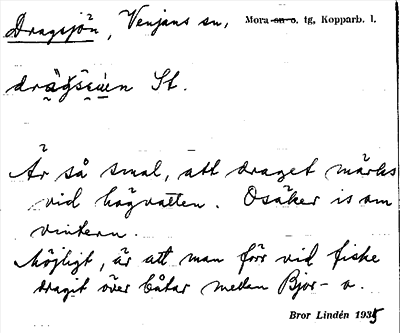 Dragsjön, Venjans sn, Mora sn o. tg, Kopparb. l.
St.
Är så smal, att draget märks
vid högvatten. Osäker is om
vintern.
Möjligt, är att man förr vid fiske
dragit över båtar medan Bjor- o.
Bror Lindén 1935